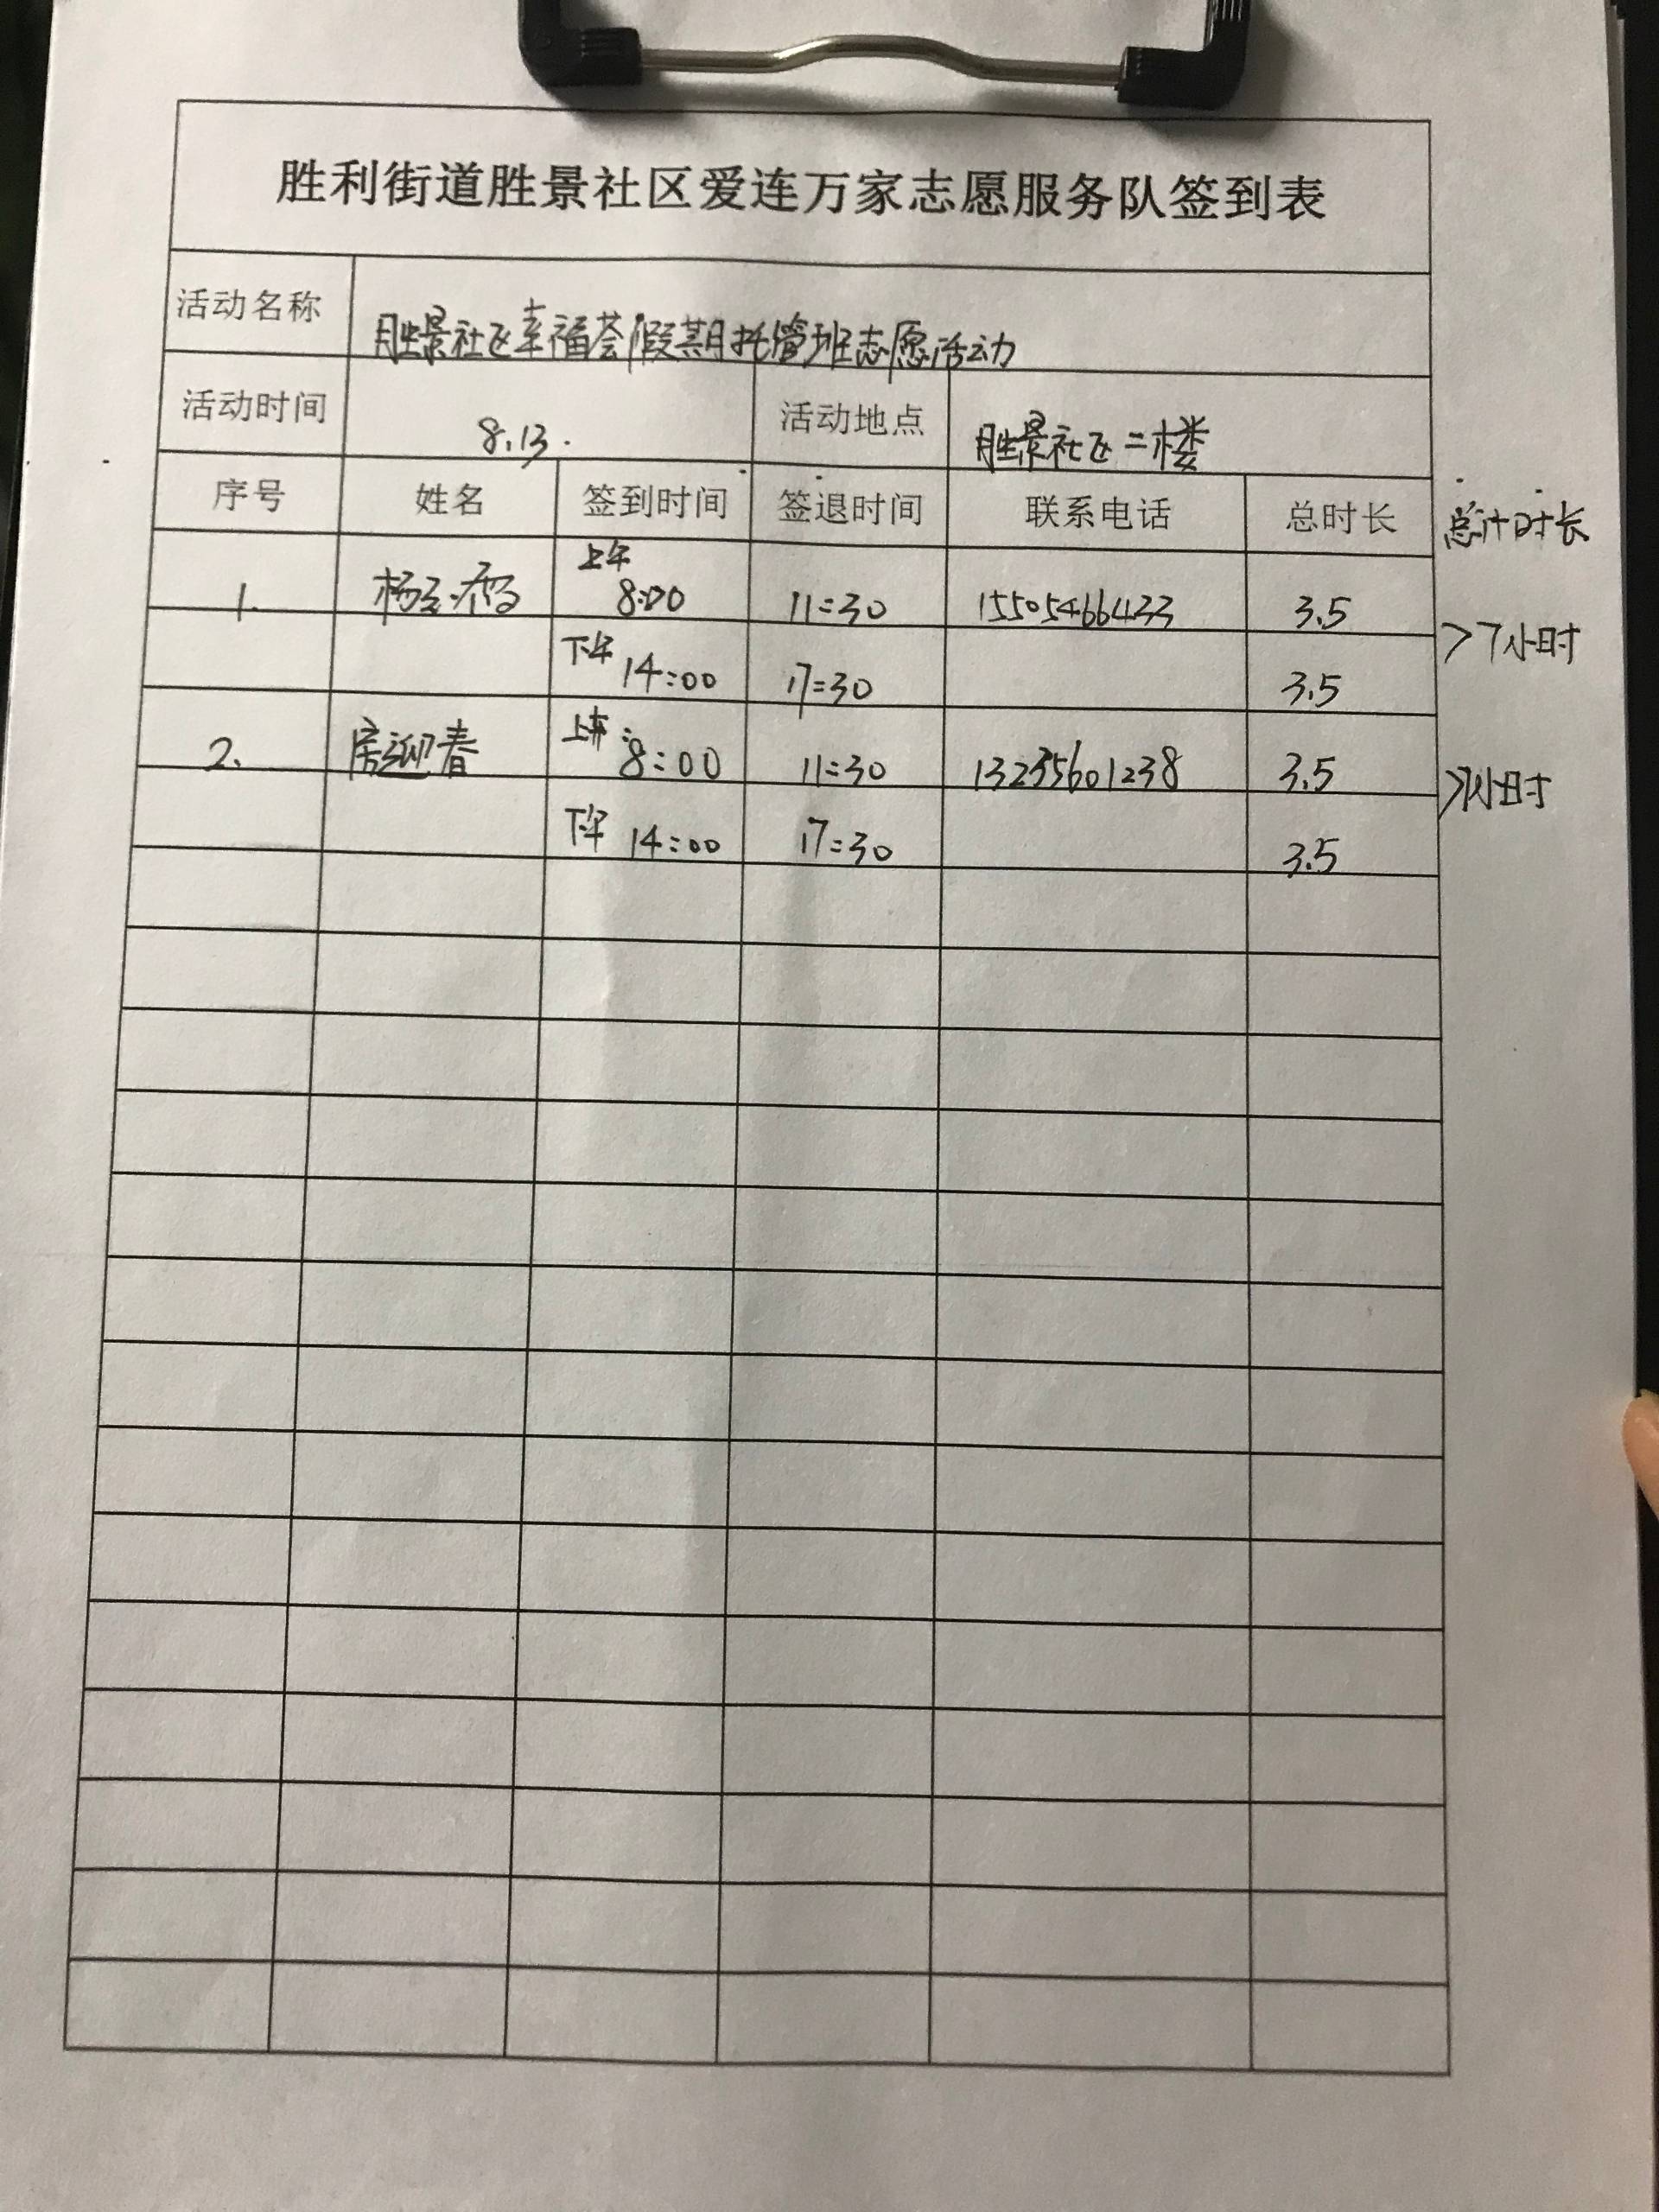 胜利街道胜景社区爱连万家志愿服务队签到表
活动名称 胜景社区幸福荟假期托管班志愿活动
活动时间 8.13. 活动地点 胜景社区二楼
序号 姓名 签到时间 签退时间 联系电话 总时长 总计时长
1. 杨 上午 8:00 11:30 15505466433 3.5
下午 14:00 17:30 3.5 >7小时
2. 房迎春 上午: 8:00 11:30 13235601238 3.5
下午 14:00 17:30 3.5 >7小时